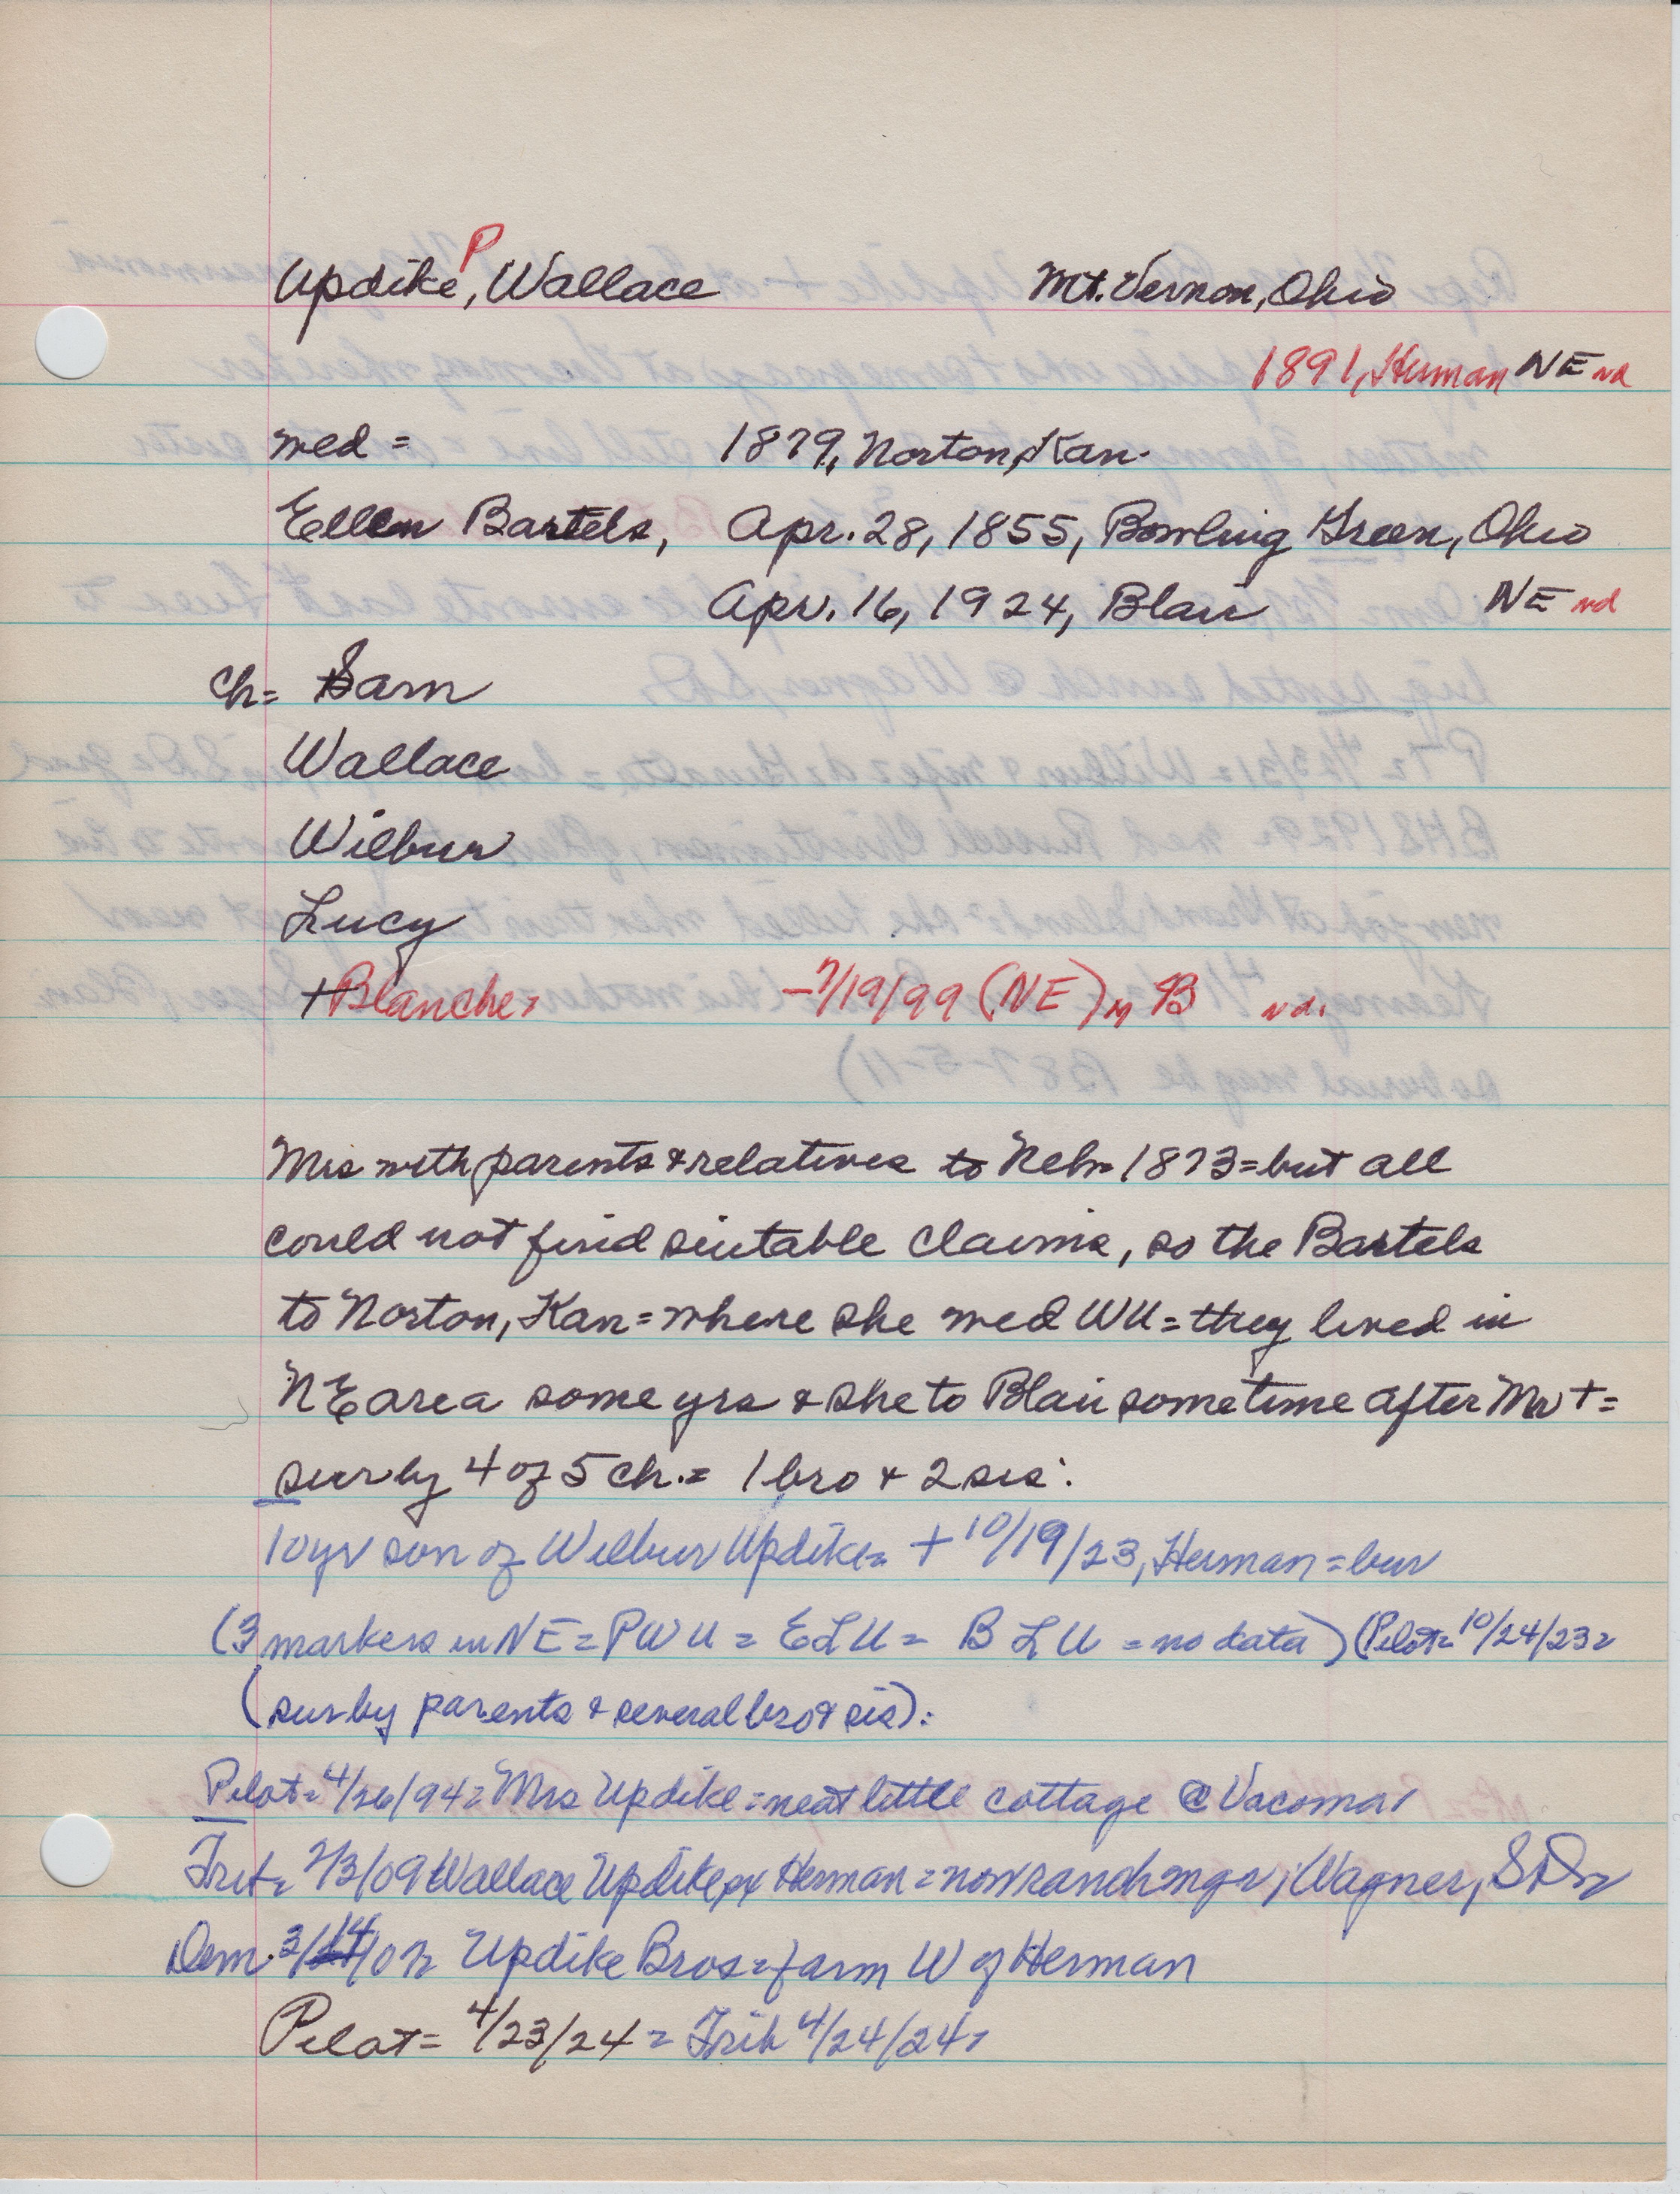 P
Updike, Wallace Mt. Vernon, Ohio
1891, Herman NE nd
med = 1879, Norton, Kan.
Ellen Bartels, Apr. 28, 1855, Bowling Green, Ohio
Apr. 16, 1924, Blair NE nd
ch= Sam
Wallace
Wilbur
Lucy
+Blanche, -7/19/99 (NE) B nd.
Mrs with parents & relatives to Neb= 1873=but all
could not find suitable claims, so the Bartels
to Norton, Kan=where she med WU=they lived in
NE area some yrs & she to Blair sometime after Mr +=
sur by 4 of 5 ch.= 1 bro & 2 sis:
10yr son of Wilbur Updike= + 10/19/23, Herman=bur
(3 markers in NE=PWU= ELU= BLU =no data) (Pilot= 10/24/23=
(sur by parents & several bro & sis):
Pilot= 4/26/94= Mrs Updike=neat little cottage @ Vacoma,
Trib= 2/3/09 Wallace Updike, Herman=now ranch mgr, Wagner, SD=
Dem. 3/14/07= Updike Bros=farm W of Herman
Pilot= 4/23/24 = Trib 4/24/24,